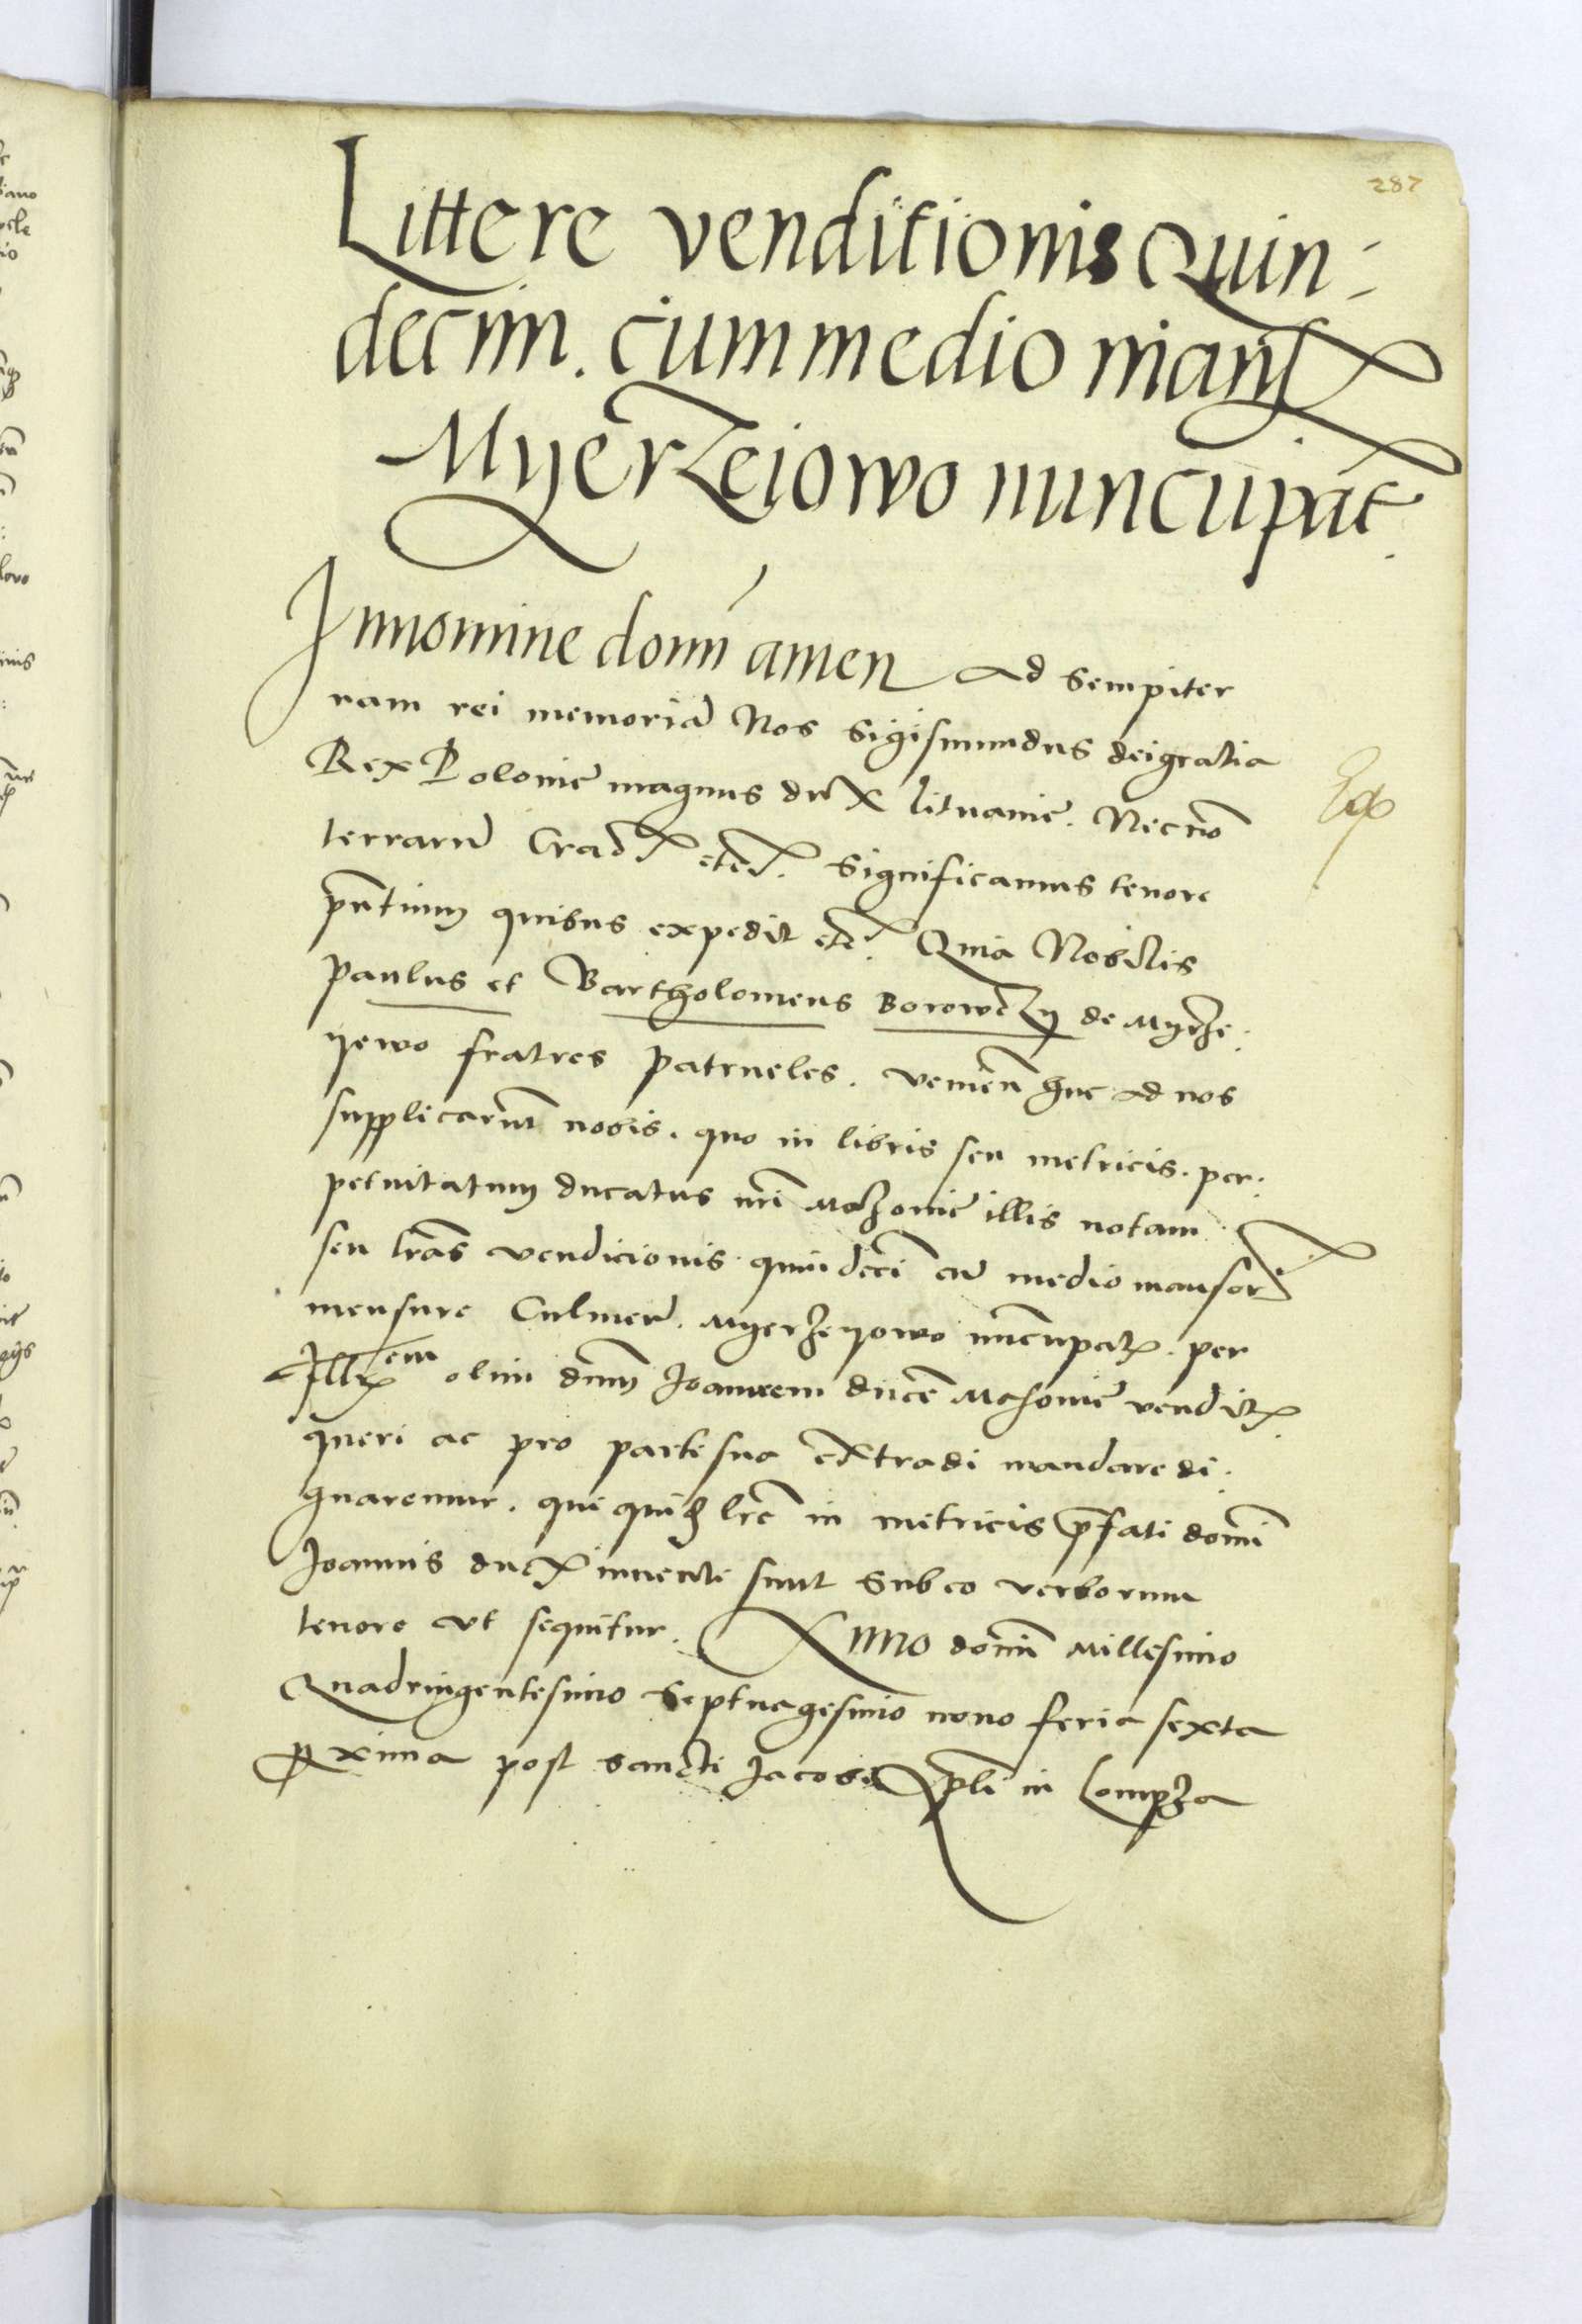 287
Littere venditionis Quin-
decim. cum medio mans
Myerzeiowo nuncupat.
In nomine domi amen Ad sempiter
nam rei memoria Nos Sigismundus dei gratia
Rex Polonie magnus dux lituanie. Necno
terraru Crac etc. Significamus tenore
pntium quibus expedit etc. Quia Nobiles
paulus et Bartholomeus Borowczy de Myrze-
yewo fratres patrueles. venien huc ad nos
supplicarunt nobis. quo in libris seu metricis. per-
petuitatum ducatus nri Mazovie illis notam
seu lras vendicionis quindeci cu medio mansor
mensure Culmen. Myerzeyowo nuncupat. per
Illrem olim dnum Joannem ducem Masovie vendit
queri ac pro parte sua extradi mandare di-
gnaremur. que quid lre in metricis pfati domi
Joannis duc invente sunt sub eo verborum
tenore ut sequitur. Anno domi Millesimo
Quadringentesimo Septuagesimo nono feria sexta
proxima post sancti Jacobi Apli in Lompza